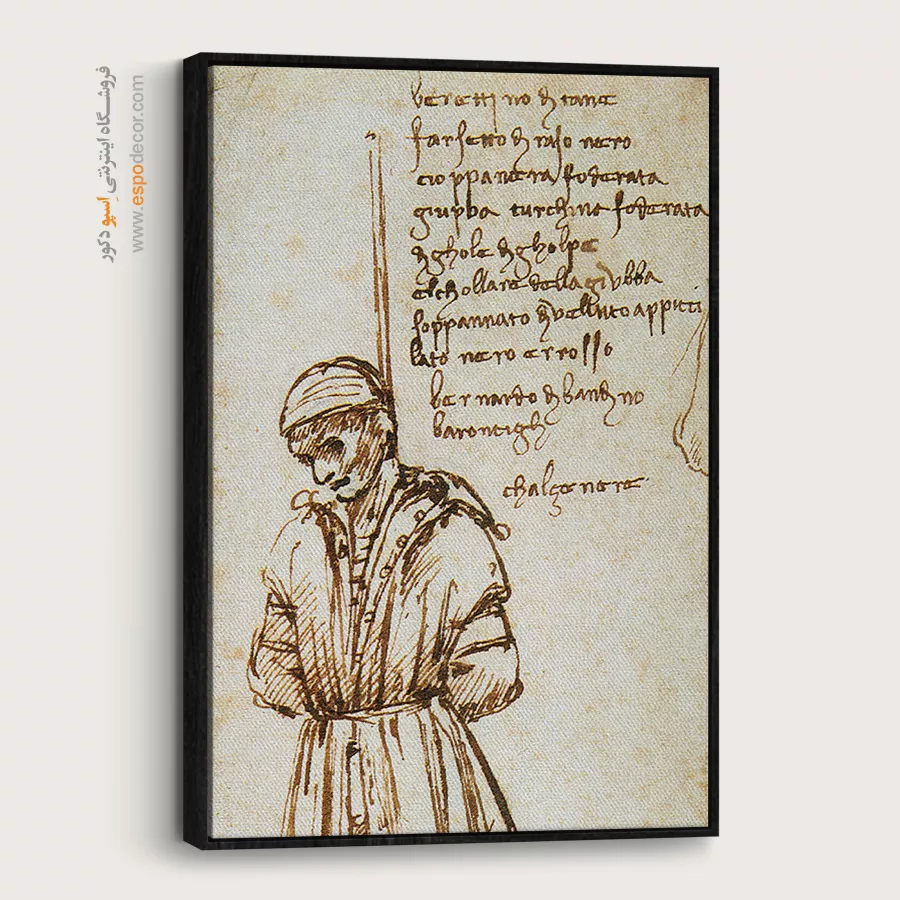 فروشگاه اینترنتی اِسپو دکور
www.espodecor.com
berettino di tane
farsetto di raso nero
cioppa nera foderata
giubba turchina foderata
di ghole di gholpe
elchollare della giubba
soppannato di velluto appicci
lato nero e rosso
bernardo di bandino
barontigh
chalze nere